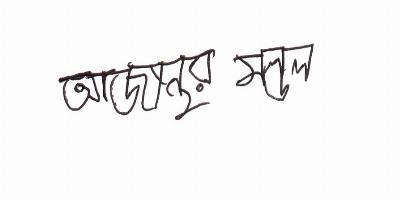 আজানুর মন্ডল